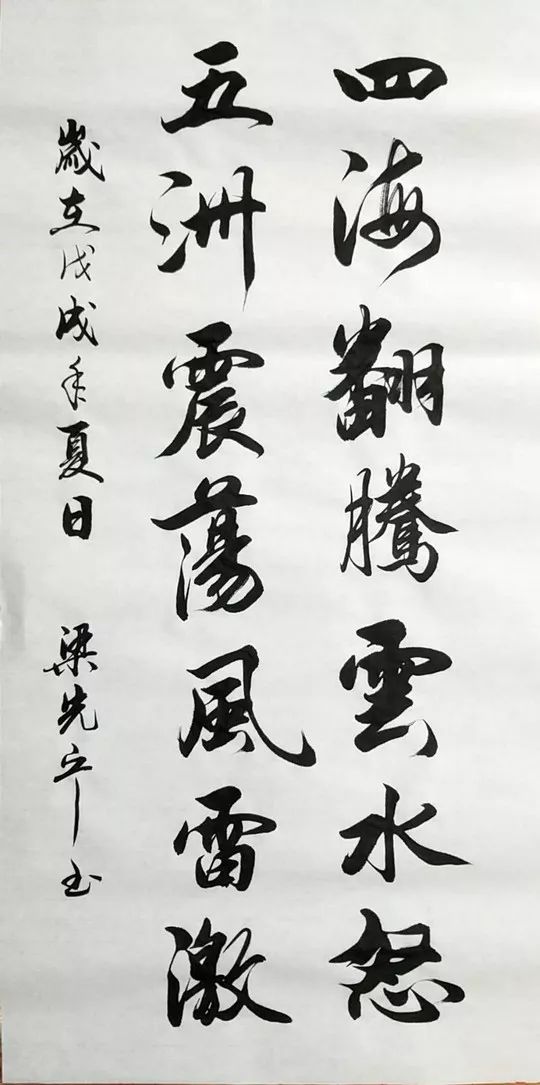 四海翻騰雲水怒
五洲震蕩風雷激
歲在戊戌年夏日 梁先